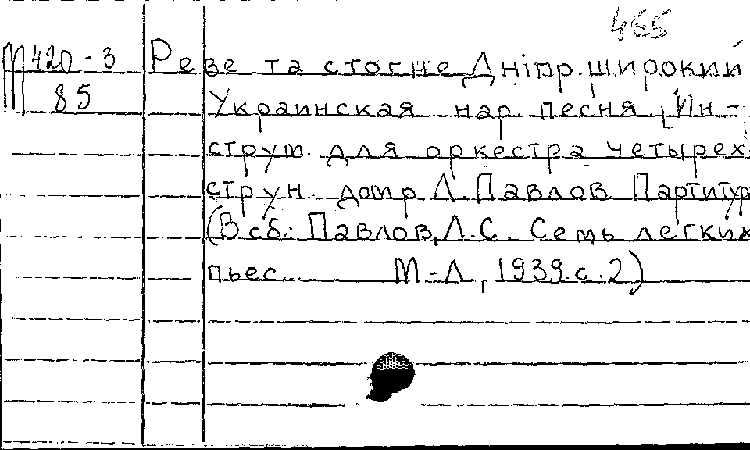 465
М420-3 Реве та стогне Дніпр широкий
85 Украинская нар. песня. Ин-
струм. для оркестра четырех-
струн. домр Л. Павлов. Партитур
(В сб.: Павлов, Л.С. Семь легких
пьес... М-Л, 1939. с. 2)